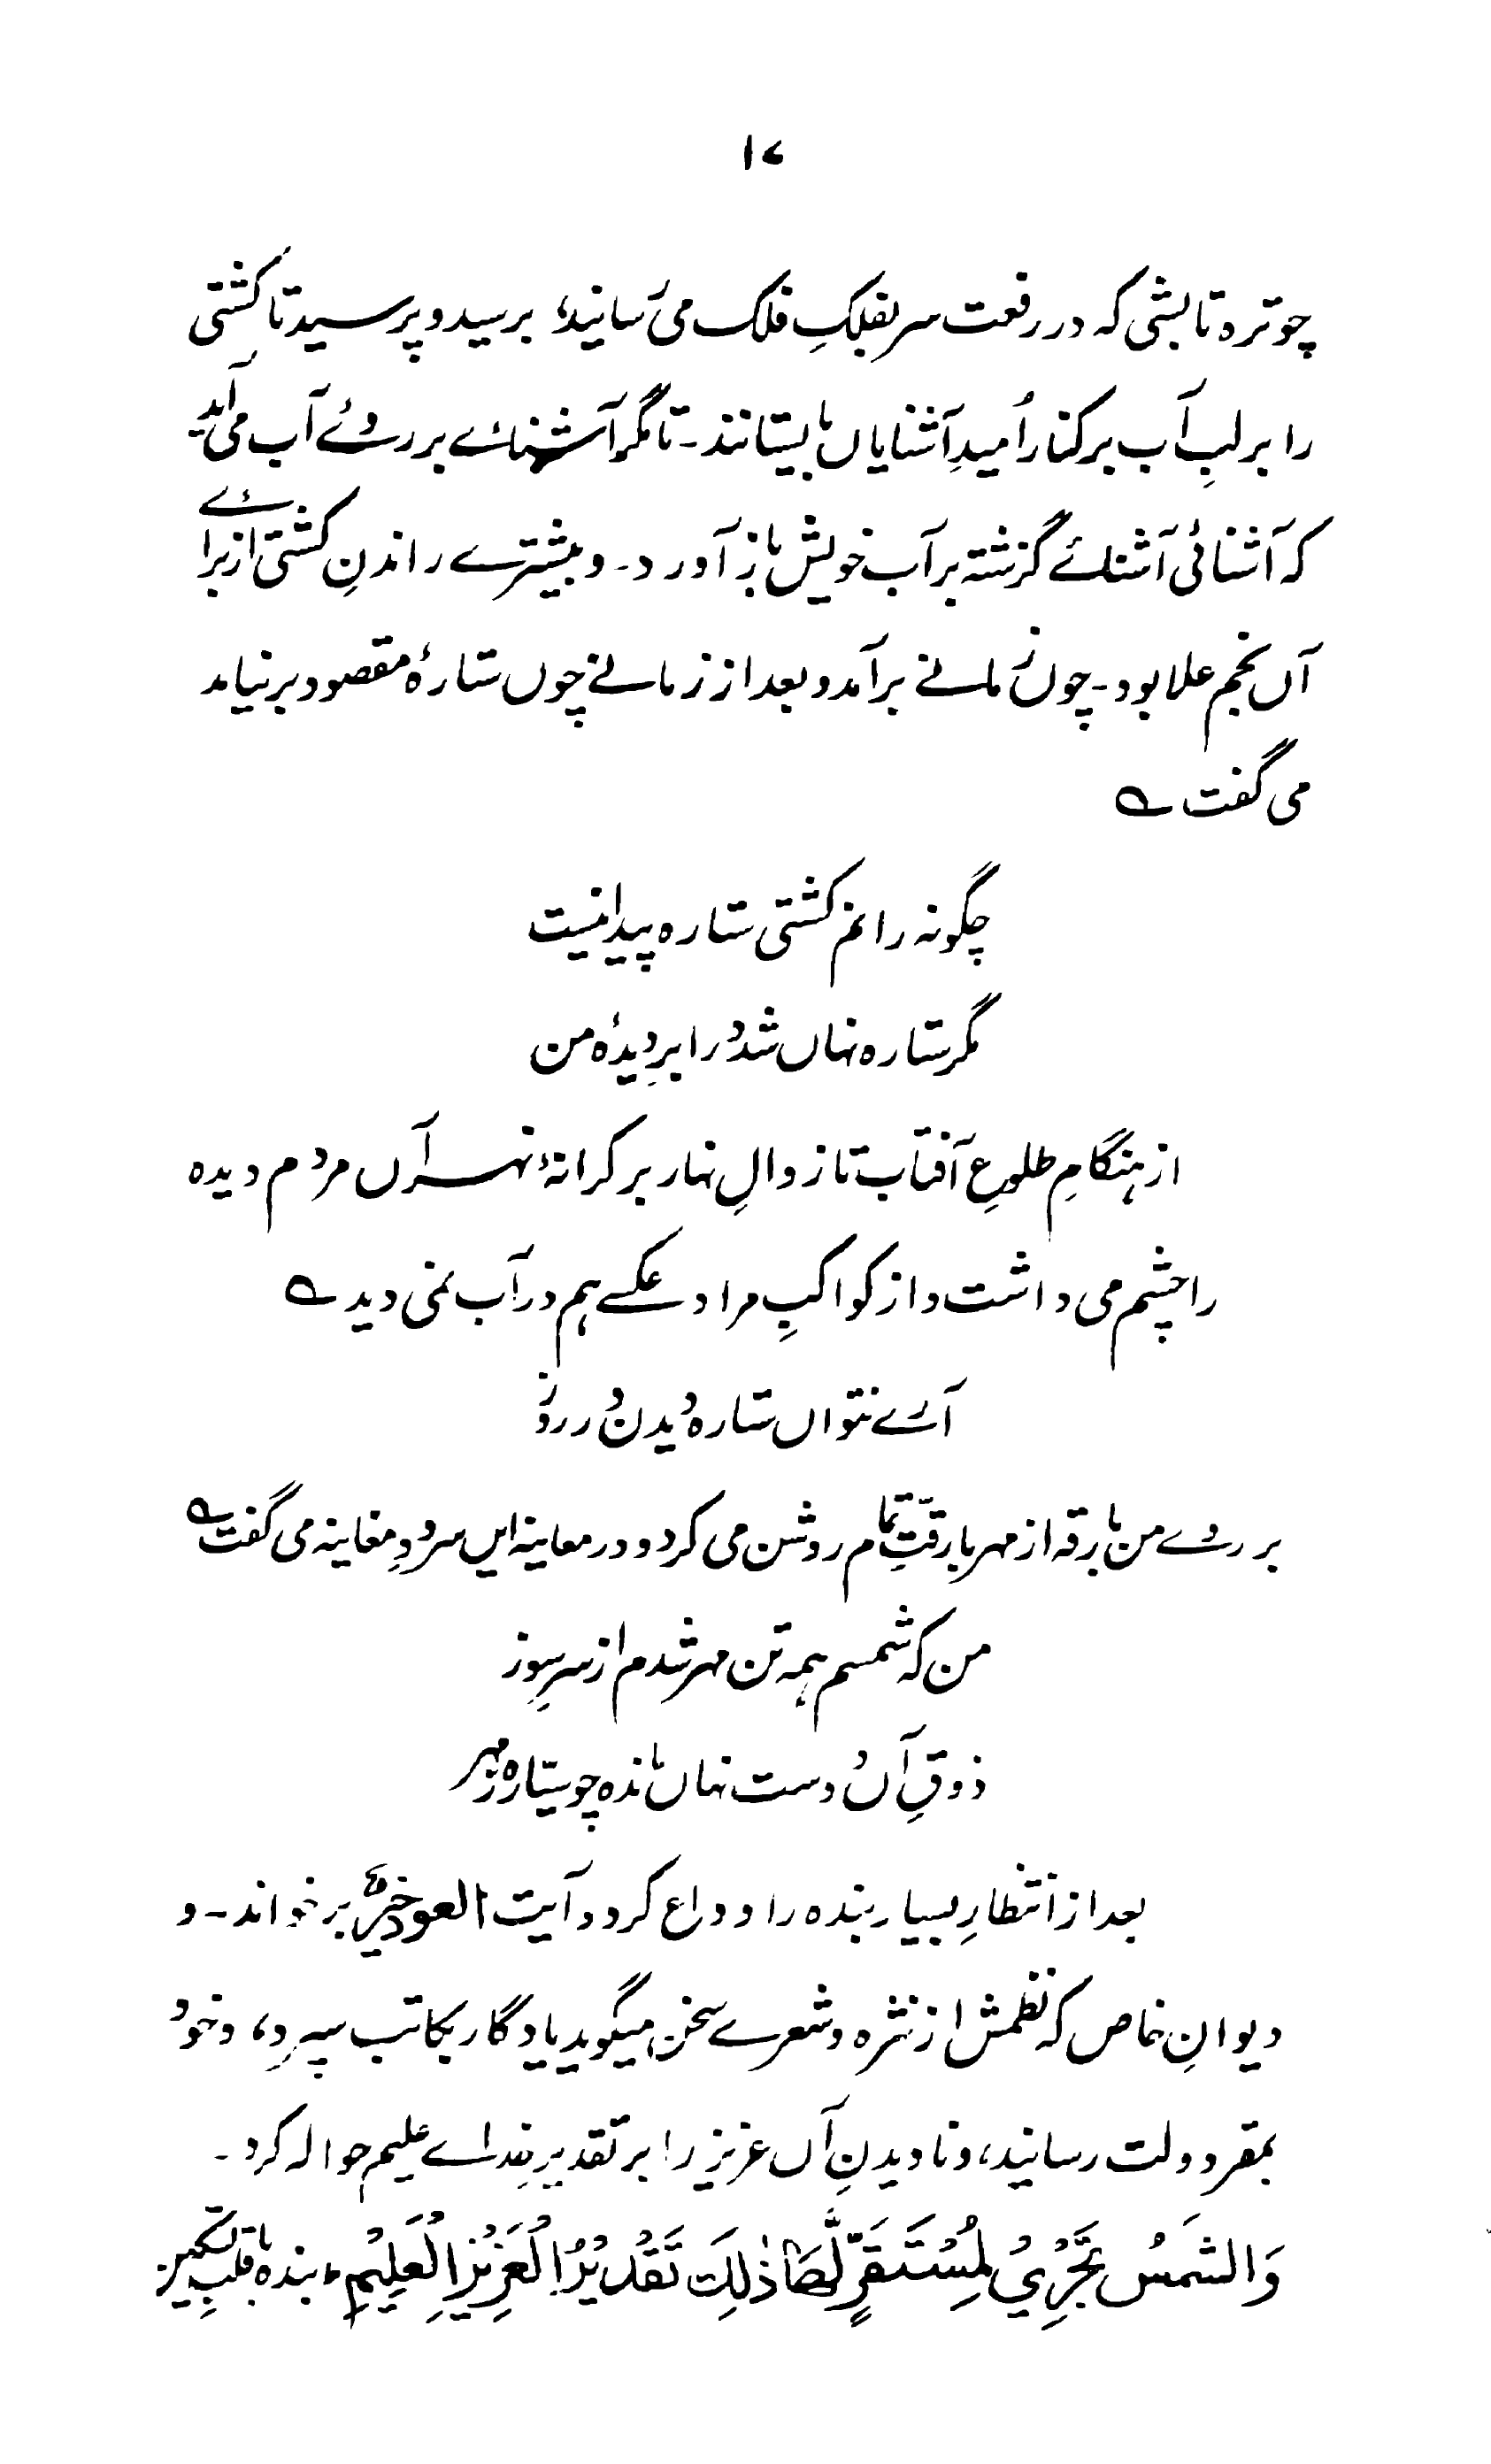 ۱۷
چوترہ تابشی کہ در رفعت سر بفلکِ فلک می رسانید، برسید و پرسید تا کشتی
را بر لبِ آب بر کنار اُمیدِ آشنایاں بایستانند۔ تا مگر آشنائے بر روئے آب می آید
کہ آشنائی آشنائے گزشتہ بر آب خویش باز آورد۔ و بیشترے راندنِ کشتی از برائے
آں نجم علا بود۔ چوں زمانے برآمد و بعد از زمانے چوں ستارۂ مقصود برنیامد
می گفت ؎
چگونہ رانم کشتی ستارہ پیدا نیست
مگر ستارہ نہاں شد در ابرِ دیدۂ من
از ہنگامِ طلوعِ آفتاب تا زوالِ نہار بر کرانۂ نہر آں مردم دیدہ
را چشم می داشت و از کواکبِ مراد عکسے ہم در آب نمی دید ؎
آرے نتواں ستارہ دیدن در روز
بر روئے من بارقہ از مہر با رقّتِ تمام روشن می کرد و در معاینہ ایں سرودِ مغاینہ می گفت ؎
من کہ شمسم ہمہ تن مہر شدم از سرِ سوز
ذوقِ آں دوست نہاں ماندہ چو ستارہ ز مہر
بعد از انتظارِ بسیار بندہ را وداع کرد و آیت العود خیرٌ بر خواند۔ و
دیوانِ خاص کہ نظمش از نثرہ و شعرے سخن میگوید یادگار بکاتب سپرد، و خود
بمقر دولت رسانید، و نادیدنِ آں عزیز را بر تقدیرِ خداے علیم حوالہ کرد۔
وَالشَّمْسُ تَجْرِيْ لِمُسْتَقَرٍّ لَّهَا ذٰلِكَ تَقْدِيْرُ الْعَزِيْزِ الْعَلِيْمِ، بندہ با قلبِ